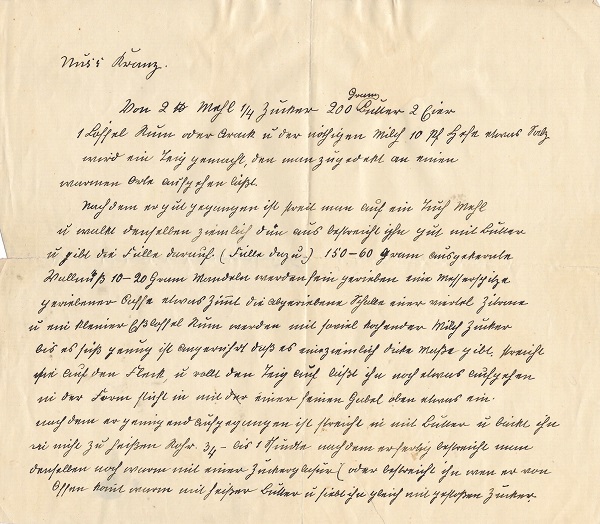 Nuss Kranz.
Gramm
Von 2 ℔ Mehl 1/4 Zucker 200 Butter 2 Eier
1 Löffel Rum oder Arack u der nöthigen Milch 10 Pf Hefe etwas Salz
wird ein Teig gemacht, den man zugedekt an einen
warmen Orte aufgehen läßt.
Nachdem er gut gegangen ist streit man auf ein Tuch Mehl
u walkt denselben ziemlich dün aus bestreicht ihn gut mit Butter
u gibt die Fülle darauf. (Fülle dazu.) 150-60 Gram ausgekernte
Wallnüß 10-20 Gram Mandeln werden fein gerieben eine Messerspitze
geriebener Caffe etwas Zimt die abgeriebene Schalle einer viertel Zitrone
u ein kleiner Eßlöffel Rum werden mit soviel kochender Milch Zucker
bis es süß genug ist angerührt daß es eine ziemlich dicke Maße gibt, streicht
sie auf den Fleck u rollt den Teig auf läßt ihn noch etwas aufgehen
in der Form sticht in mit der einer feinen Gabel oben etwas ein.
nach dem er genügend aufgegangen ist streicht in mit Butter u bäckt ihn
in nicht zu heißen Rohr 3/4 - bis 1 Stunde nach dem er fertig bestreicht man
denselben noch warm mit einer Zuckerglasur (oder bestreicht ihn wen er von
Offen komt warm mit heißer Butter u siebt ihn gleich mit gestoßen Zucker.